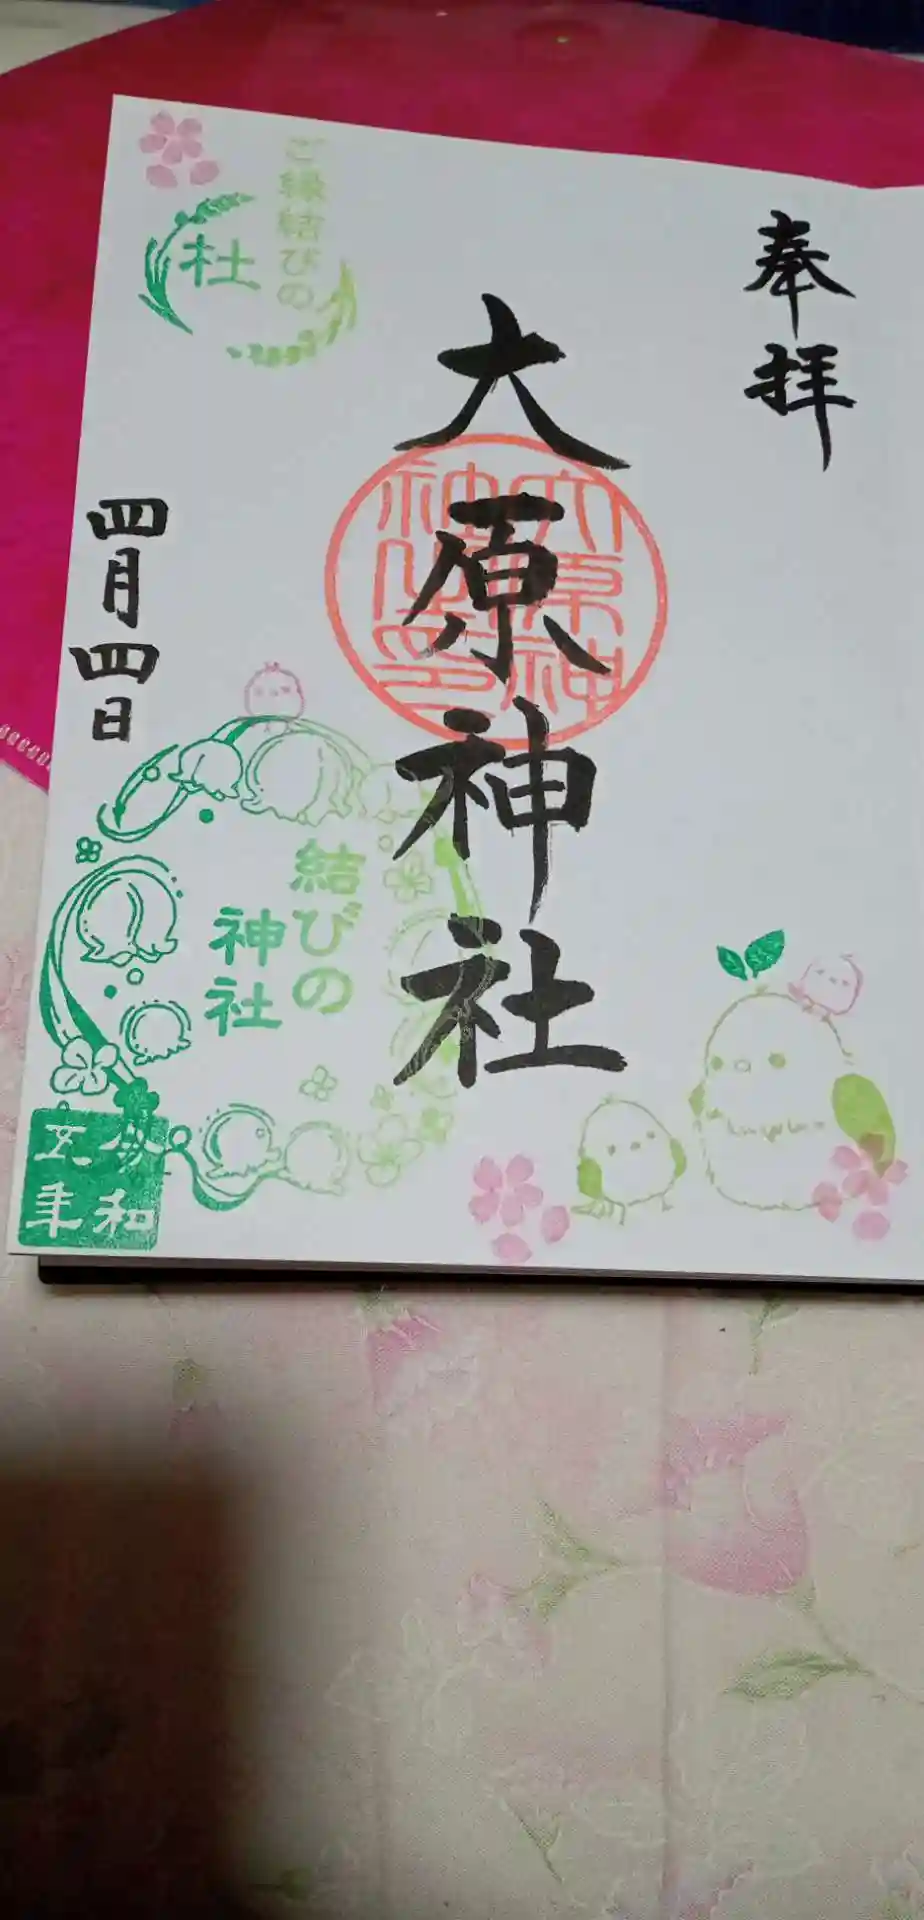 奉拝
大原神社
大原神社之印
ご縁結びの
杜
四月四日
結びの
神社
令和
五年